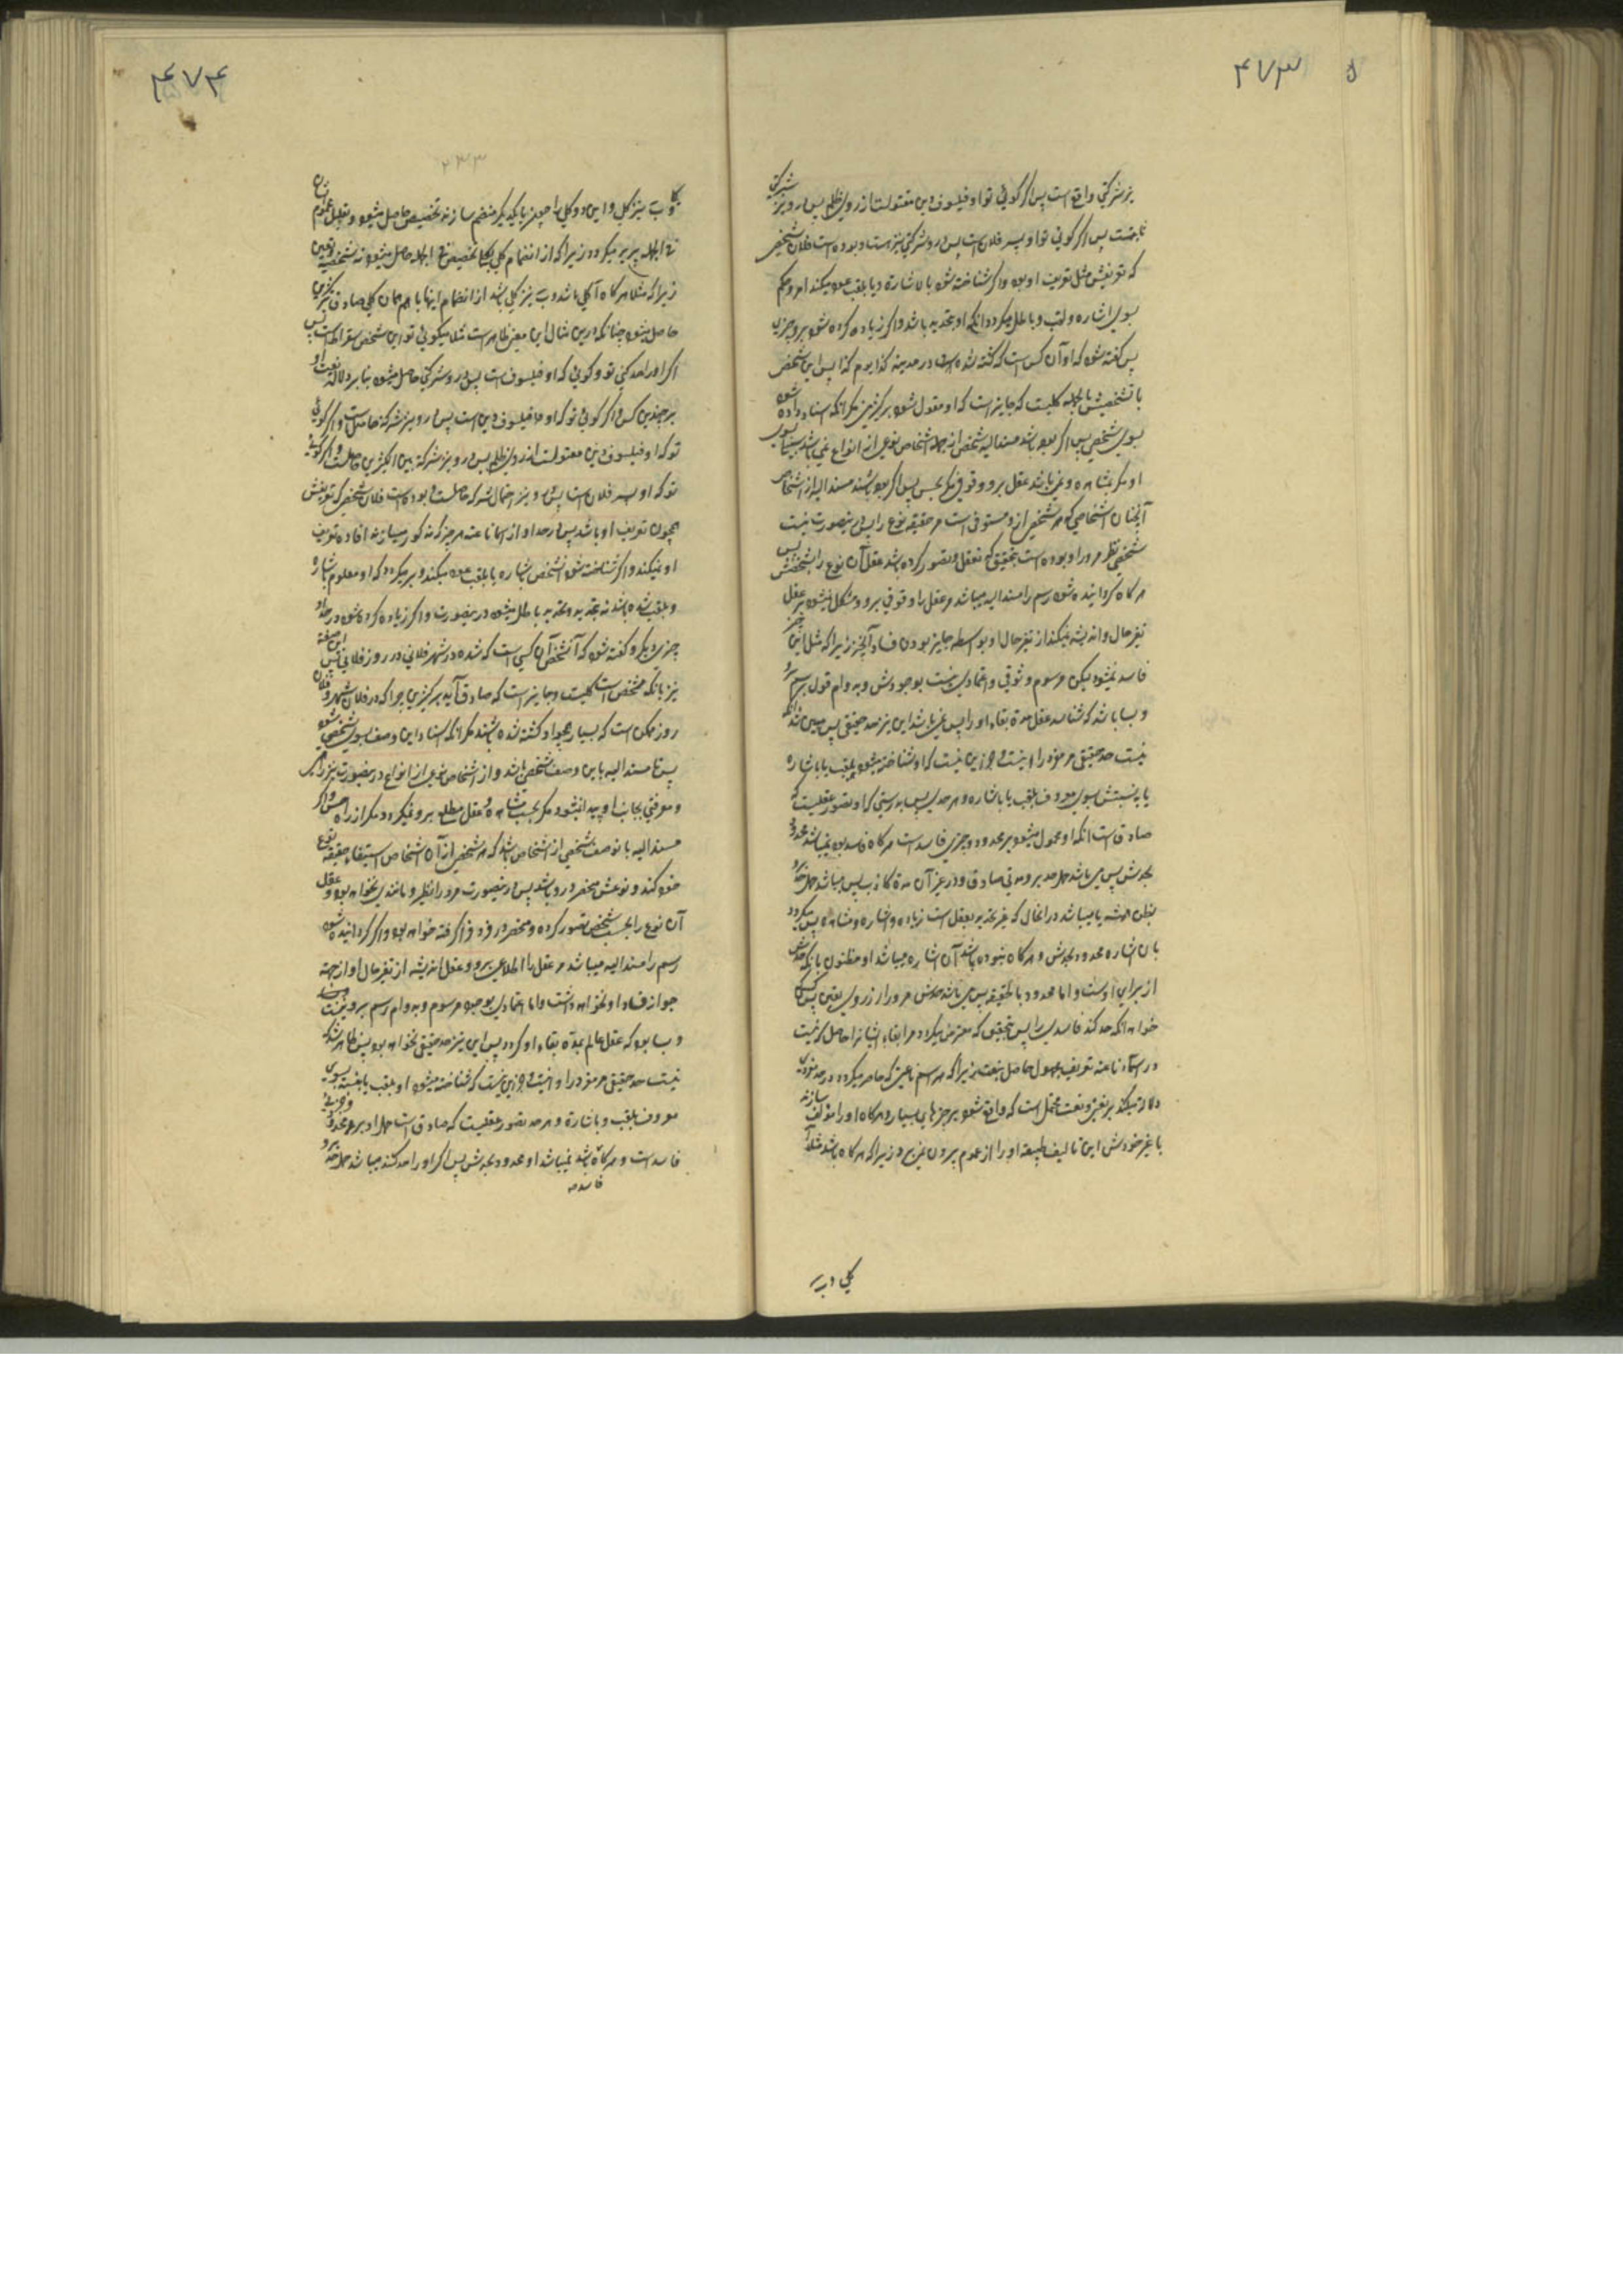 ۴۷۳
نیز شرکتی واقع است پس اگر گوئی تو او فیلسوف دین مقتولست از روی ظلم پس در و نیز شرکتی
ثابتست پس اگر گوئی تو او پسر فلان است پس در و شرکتی نیز است و بوده است فلان شخصی
که تعریفش مثل تعریف او بود و اگر شناخته شود باشاره و یا بلقب عود میکند امر و حکم
بسوی اشاره و لقب و باطل میگردد آنکه او بتحدید باشد و اگر زیاده کرده شود برو چیزی
پس گفته شود که او آن کس است که کشته شده است در مدینه کذا یوم کذا پس این شخص
با تشخیصش بالجمله کلیست که جایز است که او مقول شود بر کثیرین مگر آنکه اسناد داده شود
بسوی شخصی پس اگر بوده باشد مسند الیه شخصی از جمله اشخاص نوعی از انواع نمی باشد سبیل بسوی
او مگر بمشاهده و نمی یابد عقل برو وقوفی مگر بحس پس اگر بوده باشد مسند الیه از اشخاص
آنچنان اشخاصی که هر شخصی از و مستوفی است مر حقیقه نوع را پس درینصورت نیست
شخصی نظیر مر او را و بوده است بتحقیق که تعقل و تصور کرده باشد عقل آن نوع را بشخصش پس
هرگاه گردانیده شود رسم را مسند الیه میباشد مر عقل را وقوفی برو و مشکل نمیشود بر عقل
تغیر حال و اندیشه نمیکند از تغیر حال او بواسطه جایز بودن فساد آنچیز زیرا که مثل این چیز
فاسد نمیشود لیکن مرسوم و ثوقی و اعتمادی نیست بوجودش و بدوام قول برسم برو
و بسا باشد که شناسد عقل مدة بقاء او را پس نمی باشد این نیز حد حقیقی پس مبین شد آنکه
نیست حد حقیقی مر مفرد را و اینست و جز این نیست که او شناخته میشود بلقب یا باشاره
یا به نسبتش بسوی معروف بلقب یا باشاره و هر حدی پس بدرستی که او تصور عقلیست که
صادق است آنکه او محمول میشود بر محدود و جزئی فاسد است هرگاه فاسد بود نمیباشد محدود
بحدش پس می باشد حمل حد برو مدتی صادق و در غیر آن مدة کاذب پس میباشد حمل حد برو
بظن همیشه یا میباشد در انحال که غیر تحدید بعقل است زیاده و اشاره و مشاهده پس میگردد
بان اشاره محدود بحدش و هرگاه نبوده باشد آن اشاره میباشد او مظنون بآنکه حدش
از برای اوست و اما محدود بالحقیقه پس می باشد حدش مر او را از روی یقین پس کسی که
خواهد آنکه حد کند فاسدی را پس بتحقیق که معترض میگردد مر ابقاء ایشانرا حاصل که نیست
در اسماء ناعته تعریف مجهول حاصل بنعت زیرا که هر اسم ناعتی که حاصر میگردد در حد مفردی
دلالة میکند بر نعتی و نعت محتمل است که واقع شود بر چیزهای بسیار و هرگاه او را مؤلف سازند
با غیر خودش این تالیف طبیعة او را از عموم بیرون نمی برد زیرا که هرگاه باشد مثلا آ
کلی و ب
۴۷۴
۲۳۳
کلی و ب نیز کلی و این دو کلی را چون بایکدیگر منضم سازند تخصیص حاصل میشود و تقلیل عموم شان
فی الجمله پدید میگردد زیرا که از انضمام کلی بکلی تخصیص فی الجمله حاصل میشود نه شخصیه و تعین
زیرا که مثلا هرگاه آ کلی باشد و ب نیز کلی باشد از انضمام اینها باهم همان کلی صادق بر کثیرین
حاصل میشود چنانکه درین مثال این معنی ظاهر است مثلا میگوئی تو این شخص سقراط است پس
اگر او را حد کنی تو و گوئی که او فیلسوف است پس در و شرکتی حاصل میشود بنا بر دلالة نعت او
بر چندین کس و اگر گوئی تو که او فیلسوف دین است پس در و نیز شرکة حاصل است و اگر گوئی
تو که او فیلسوف دین مقتولست از روی ظلم پس در و نیز شرکة بین الکثیرین حاصلست و اگر گوئی
تو که او پسر فلان است پس در و نیز احتمال شرکة حاصلست و بوده است فلان شخصی که تعریفش
همچون تعریف او باشد پس در حد او از اسماء ناعته هر چیز که مذکور میسازند افاده تعریف
او نمیکند و اگر شناخته شود آن شخص باشاره یا بلقب عود میکند و بر میگردد که او معلوم باشاره
و بلقب شده باشد نه بتحدید و تحدید باطل میشود درینصورت و اگر زیاده کرده شود در حد او
چیزی دیگر و گفته شود که آن شخص آن کسی است که کشته شده در شهر فلانی در روز فلانی پس این صفة
نیز بآنکه مشخص است کلیست و جایز است که صادق آید بر کثیرین چرا که در فلان شهر و فلان
روز ممکن است که بسیار همچو او کشته شده باشند مگر آنکه اسناد این وصف بسوی شخصی شود
پس تا مسند الیه باین وصف شخصی باشد و از اشخاص نوعی از انواع درینصورت نیز راهی
و معرفتی بجانب او پیدا نمیشود مگر بحسب مشاهده و عقل مطلع برو نمیگردد مگر از راه حس و اگر
مسند الیه باتوصف شخصی از اشخاص باشد که هر شخصی از آن اشخاص استیفاء حقیقه نوع
خود کند و نوعش منحصر در و باشد پس درینصورت مر او را نظیر و مانندی نخواهد بود و عقل
آن نوع را بحسب شخص تصور کرده و منحصر در فرد فرا گرفته خواهد بود و اگر گردانیده شود
رسم را مسند الیه میباشد مر عقل را اطلاعی برو و عقل اندیشه از تغیر حال او از جهة
جواز فساد او نخواهد داشت و اما اعتمادی بوجود مرسوم و بدوام رسم برو نیست
و بسا بود که عقل عالم بمدة بقاء او گردد پس این نیز حد حقیقی نخواهد بود پس ظاهر شد که
نیست حد حقیقی مر مفرد را و اینست و جز این نیست که شناخته میشود او بلقب یا بنسبة بسوی
معروف بلقب و باشارة و هر حد تصور عقلیست که صادق است حمل او بر محدود و جزئی
فاسد است و هرگاه فاسد باشد نمیباشد او محدود بحدش پس اگر او را حد کنند میباشد حمل حد برو